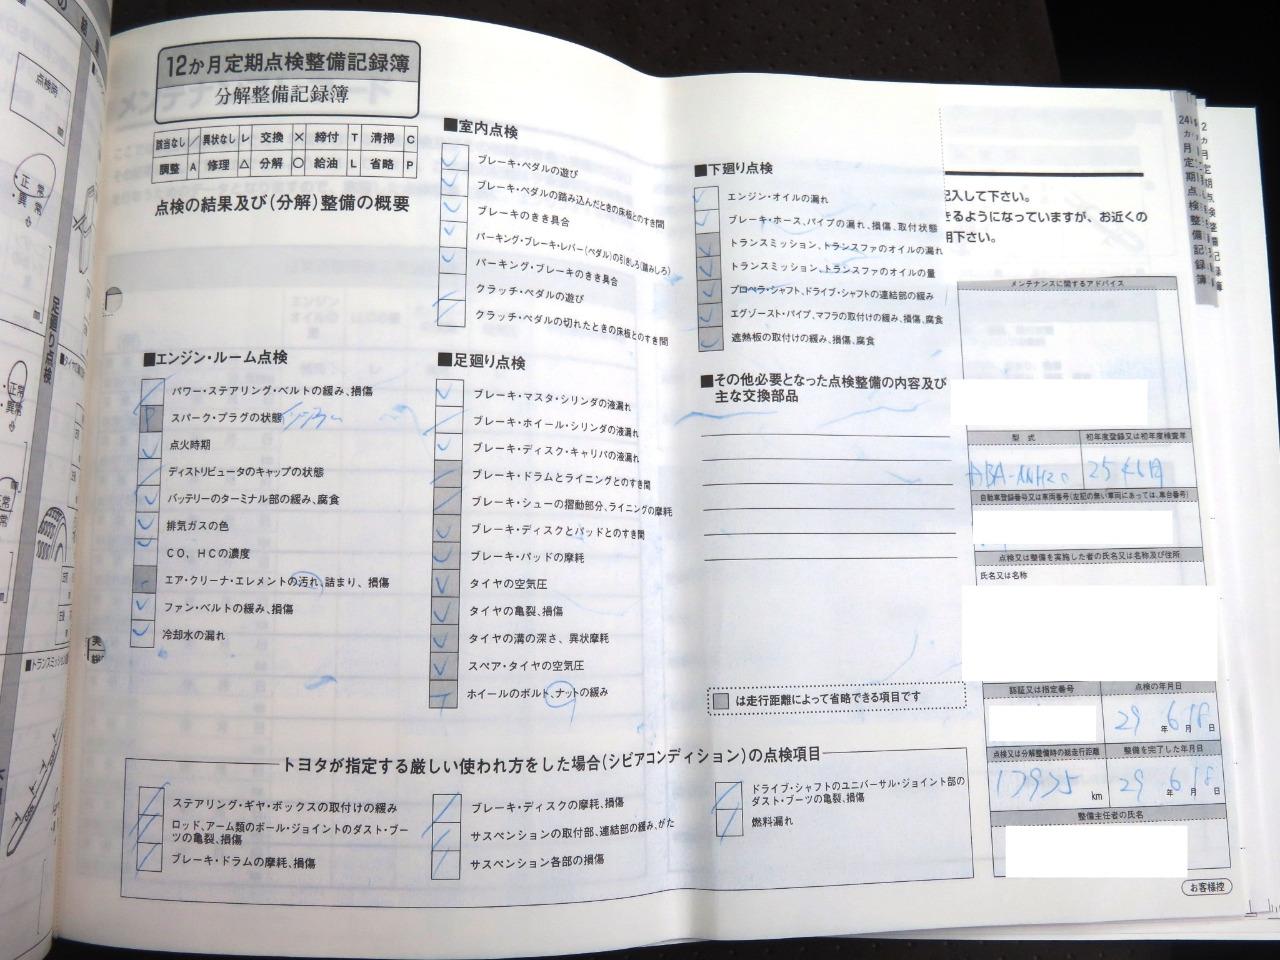 12か月定期点検整備記録簿
分解整備記録簿
該当なし ／ 異状なし レ 交換 × 締付 T 清掃 C
調整 A 修理 △ 分解 ○ 給油 L 省略 P
点検の結果及び(分解)整備の概要
■エンジン・ルーム点検
パワー・ステアリング・ベルトの緩み、損傷
スパーク・プラグの状態
点火時期
ディストリビュータのキャップの状態
バッテリーのターミナル部の緩み、腐食
排気ガスの色
CO、HCの濃度
エア・クリーナ・エレメントの汚れ、詰まり、損傷
ファン・ベルトの緩み、損傷
冷却水の漏れ
■室内点検
ブレーキ・ペダルの遊び
ブレーキ・ペダルの踏み込んだときの床板とのすき間
ブレーキのきき具合
パーキング・ブレーキ・レバー(ペダル)の引きしろ(踏みしろ)
パーキング・ブレーキのきき具合
クラッチ・ペダルの遊び
クラッチ・ペダルの切れたときの床板とのすき間
■足廻り点検
ブレーキ・マスタ・シリンダの液漏れ
ブレーキ・ホイール・シリンダの液漏れ
ブレーキ・ディスク・キャリパの液漏れ
ブレーキ・ドラムとライニングとのすき間
ブレーキ・シューの摺動部分、ライニングの摩耗
ブレーキ・ディスクとパッドとのすき間
ブレーキ・パッドの摩耗
タイヤの空気圧
タイヤの亀裂、損傷
タイヤの溝の深さ、異状摩耗
スペア・タイヤの空気圧
ホイールのボルト、ナットの緩み
■下廻り点検
エンジン・オイルの漏れ
ブレーキ・ホース、パイプの漏れ、損傷、取付状態
トランスミッション、トランスファのオイルの漏れ
トランスミッション、トランスファのオイルの量
プロペラ・シャフト、ドライブ・シャフトの連結部の緩み
エグゾースト・パイプ、マフラの取付けの緩み、損傷、腐食
遮熱板の取付けの緩み、損傷、腐食
■その他必要となった点検整備の内容及び
主な交換部品
は走行距離によって省略できる項目です
トヨタが指定する厳しい使われ方をした場合(シビアコンディション)の点検項目
ステアリング・ギヤ・ボックスの取付けの緩み
ロッド、アーム類のボール・ジョイントのダスト・ブー
ツの亀裂、損傷
ブレーキ・ドラムの摩耗、損傷
ブレーキ・ディスクの摩耗、損傷
サスペンションの取付部、連結部の緩み、がた
サスペンション各部の損傷
ドライブ・シャフトのユニバーサル・ジョイント部の
ダスト・ブーツの亀裂、損傷
燃料漏れ
記入して下さい。
きるようになっていますが、お近くの
用下さい。
メンテナンスに関するアドバイス
型 式 初年度登録又は初年度検査年
ABA-ANH20 25年6月
自動車登録番号又は車両番号(左記の無い車両にあっては、車台番号)
点検又は整備を実施した者の氏名又は名称及び住所
氏名又は名称
認証又は指定番号 点検の年月日
29年 6月 18日
点検又は分解整備時の総走行距離 整備を完了した年月日
17975 km 29年 6月 18日
整備主任者の氏名
お客様控
24か月定期点検整備記録簿
足廻り点検
点検時
正常
・異常